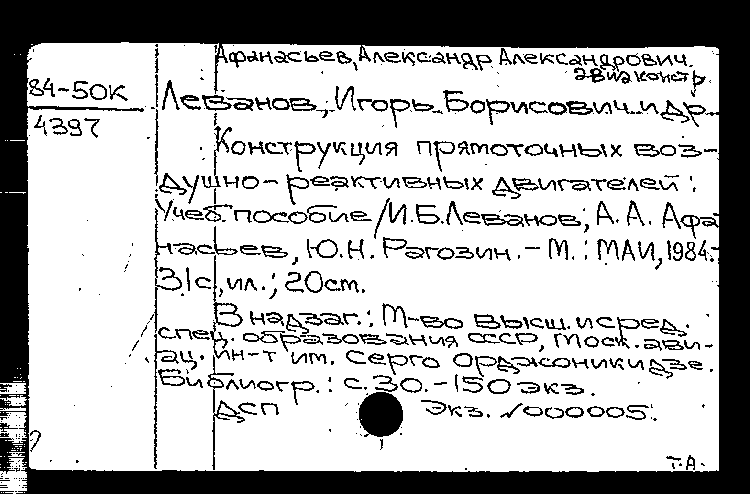 Афанасьев, Александр Александрович.
авиаконстр.
84-50К
4397
Леванов, Игорь Борисович и др.
Конструкция прямоточных воз-
душно-реактивных двигателей:
Учеб. пособие / И.Б. Леванов, А.А. Афа
насьев, Ю.Н. Рагозин. - М.: МАИ, 1984.-
31с., ил.; 20 см.
В надзаг.: М-во высш. и сред.
спец. образования СССР, Моск. ави-
ац. ин-т им. Серго Орджоникидзе.
Библиогр.: с. 30. - 150 экз.
ДСП Экз. №000005.
Т.А.